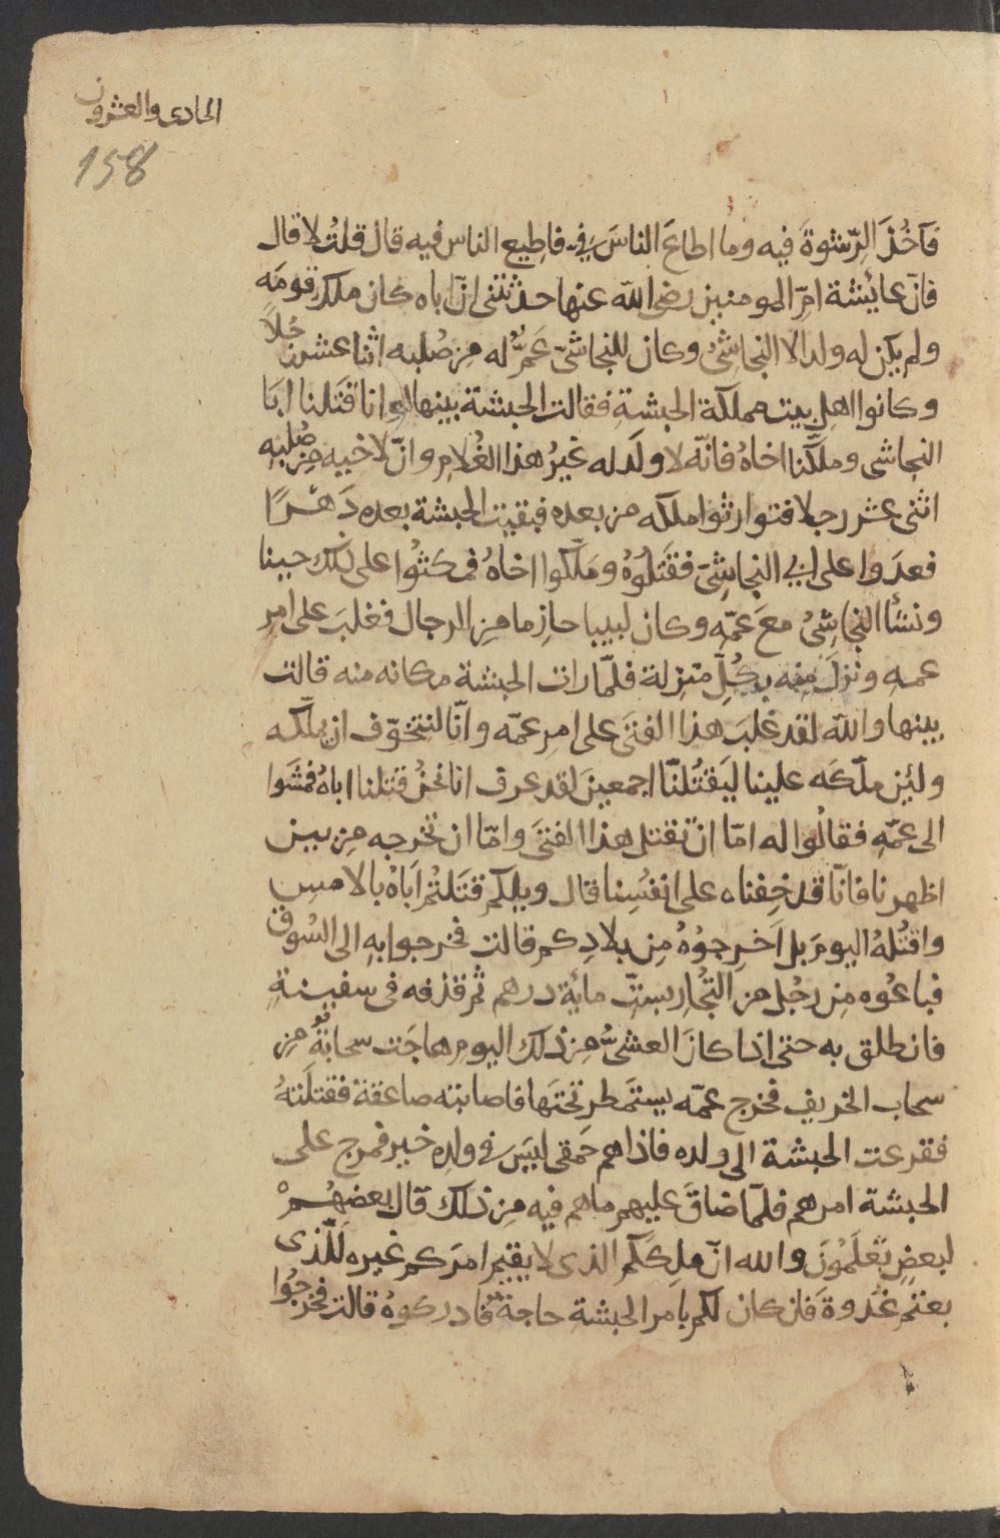 الحادى والعشرون
158
فآخُذَ الرِّشوةَ فيه وما اطاعَ الناسَ فِيَّ فاطيع الناس فيه قال قلتُ لا قال
فانّ عائشة امّ المومنين رضى الله عنها حدثتنى انّ اباه كان ملك قومَه
ولم يكن له ولد الا النجاشىُّ وكان للنجاشىّ عَمٌّ له مِن صُلبه اثنا عشر رجُلاً
وكانوا اهل بيت مملكة الحبشةِ فقالت الحبشة بينها لو انا قَتَلنا ابَا
النجاشى وملّكنا اخاهُ فانّه لا ولَد له غيرُ هذا الغُلامِ وانّ لاخيه مِن صُلبِهِ
اثنى عشر رجلا فتوارثوا ملكه من بعده فبقيت الحبشة بعده دَهْرًا
فعدَوا على ابى النجاشِىّ فقَتَلُوْهُ ومَلّكوا اخاهُ فمكثُوا على ذلك حينا
ونشأ النجاشِىُّ معَ عَمّهِ وكان لبيبا حازِما مِن الرجال فغلبَ على امرِ
عمهِ ونزلَ مِنه بكُلِّ منزِلة فلمّا رات الحبشة مكانه منه قالت
بينها والله لقد غلبَ هذا الفتَى على امرِ عمّه وانّا لنتخوّف ان يملّكه
ولئِن ملّكَه علينا ليَقتُلنّا اجمعينَ لقد عرف انا نحنُ قتلنا اباهُ فمشَوا
الى عمّهِ فقالُوا له امّا انْ تقتل هذا الفتىَ وامّا ان تخرجه مِن بين
اظهرنا فانّا قد خِفناه على انفُسِنا قال ويلكم قتَلتُمْ اَباهُ بالامسِ
واقتُلهُ اليومَ بل اَخرِجوُهُ مِن بلادِكم قالت فخرجوا بهِ الى السُوقِ
فباعُوه مِن رجُل من التجُّار بسِتّ مائة درهم ثم قذفه فى سفينةٍ
فانطلق به حتى اذا كانَ العشىُّ مِن ذلك اليوم هاجَت سحابةٌ مِن
سحاب الخريف فخرج عمّه يستَمطر تحتَها فاصابته صاعقة فقتلَتهُ
ففزعت الحبشة الى ولده فاذا هم حَمقى ليسَ فى ولده خير فمرج على
الحبشة امرهم فلمّا ضاقَ عليهم ما هم فيه مِن ذلك قال بعضهُمْ
لبعضٍ تعْلَمُونَ والله انّ مِلِكَكُم الذى لا يقيم امرَكم غيره لَلّذى
بعتم غُدوةً فان كان لكم بامر الحبشة حاجة فادركوهُ قالت فخرجُوا